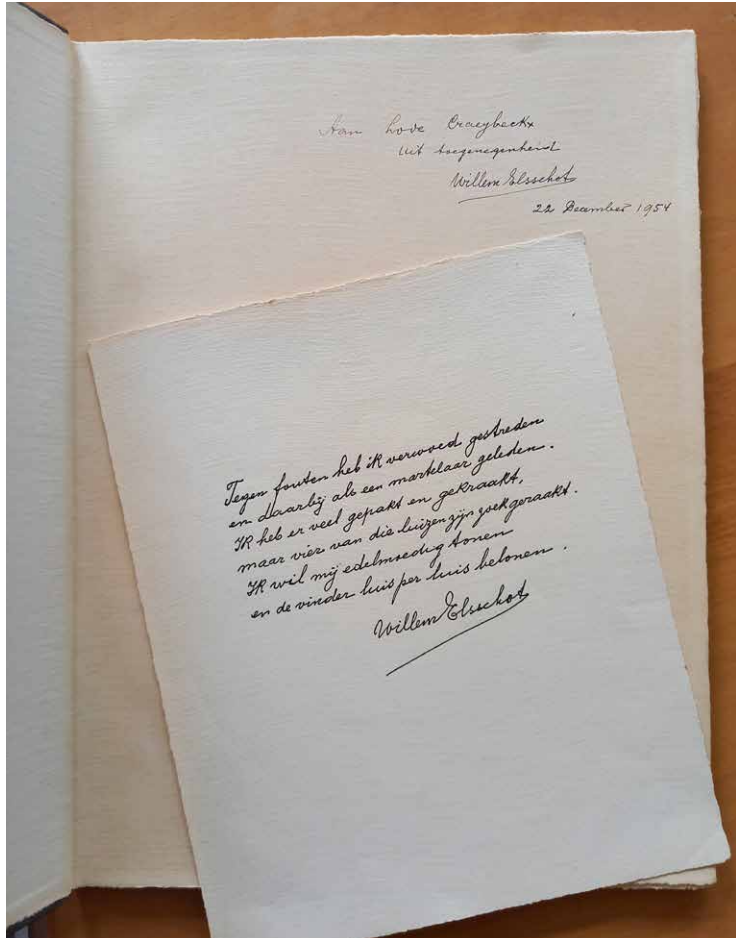 Aan Lode Craeybeckx
Uit toegenegenheid
Willem Elsschot
22 December 1954
Tegen fouten heb ik verwoed gestreden
en daarbij als een martelaar geleden.
Ik heb er veel gepakt en gekraakt,
maar vier van die luizen zijn zoek geraakt.
Ik wil mij edelmoedig tonen
en de vinder luis per luis belonen.
Willem Elsschot